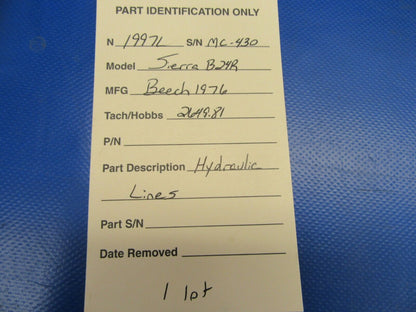 PART IDENTIFICATION ONLY
N 1997L S/N MC-430
Model Sierra B24R
MFG Beech 1976
Tach/Hobbs 2649.81
P/N
Part Description Hydraulic
Lines
Part S/N
Date Removed
1 lot